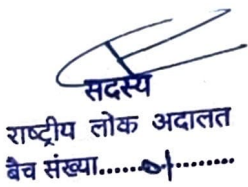 सदस्य
राष्ट्रीय लोक अदालत
बैच संख्या......01..........